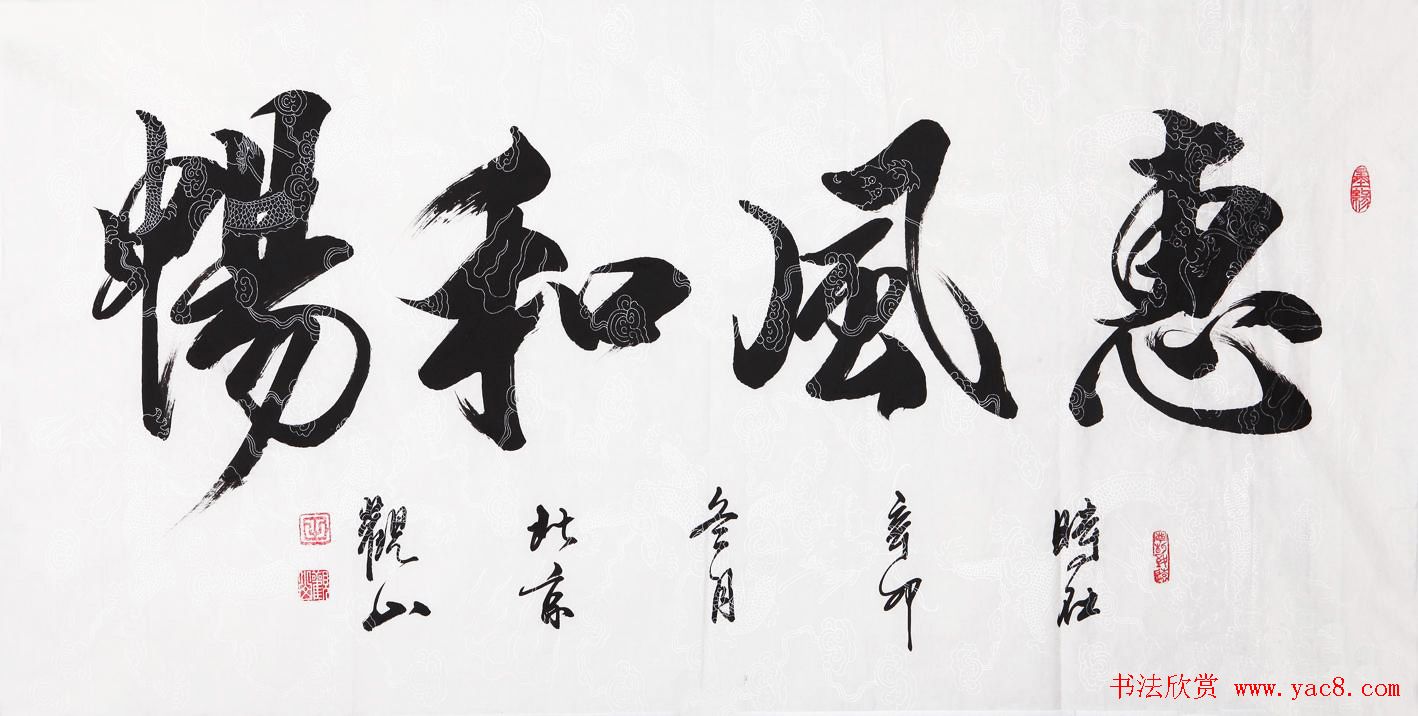 墨緣
惠風和暢
時在
辛卯
冬月
北京
觀山
书法欣赏 www.yac8.com